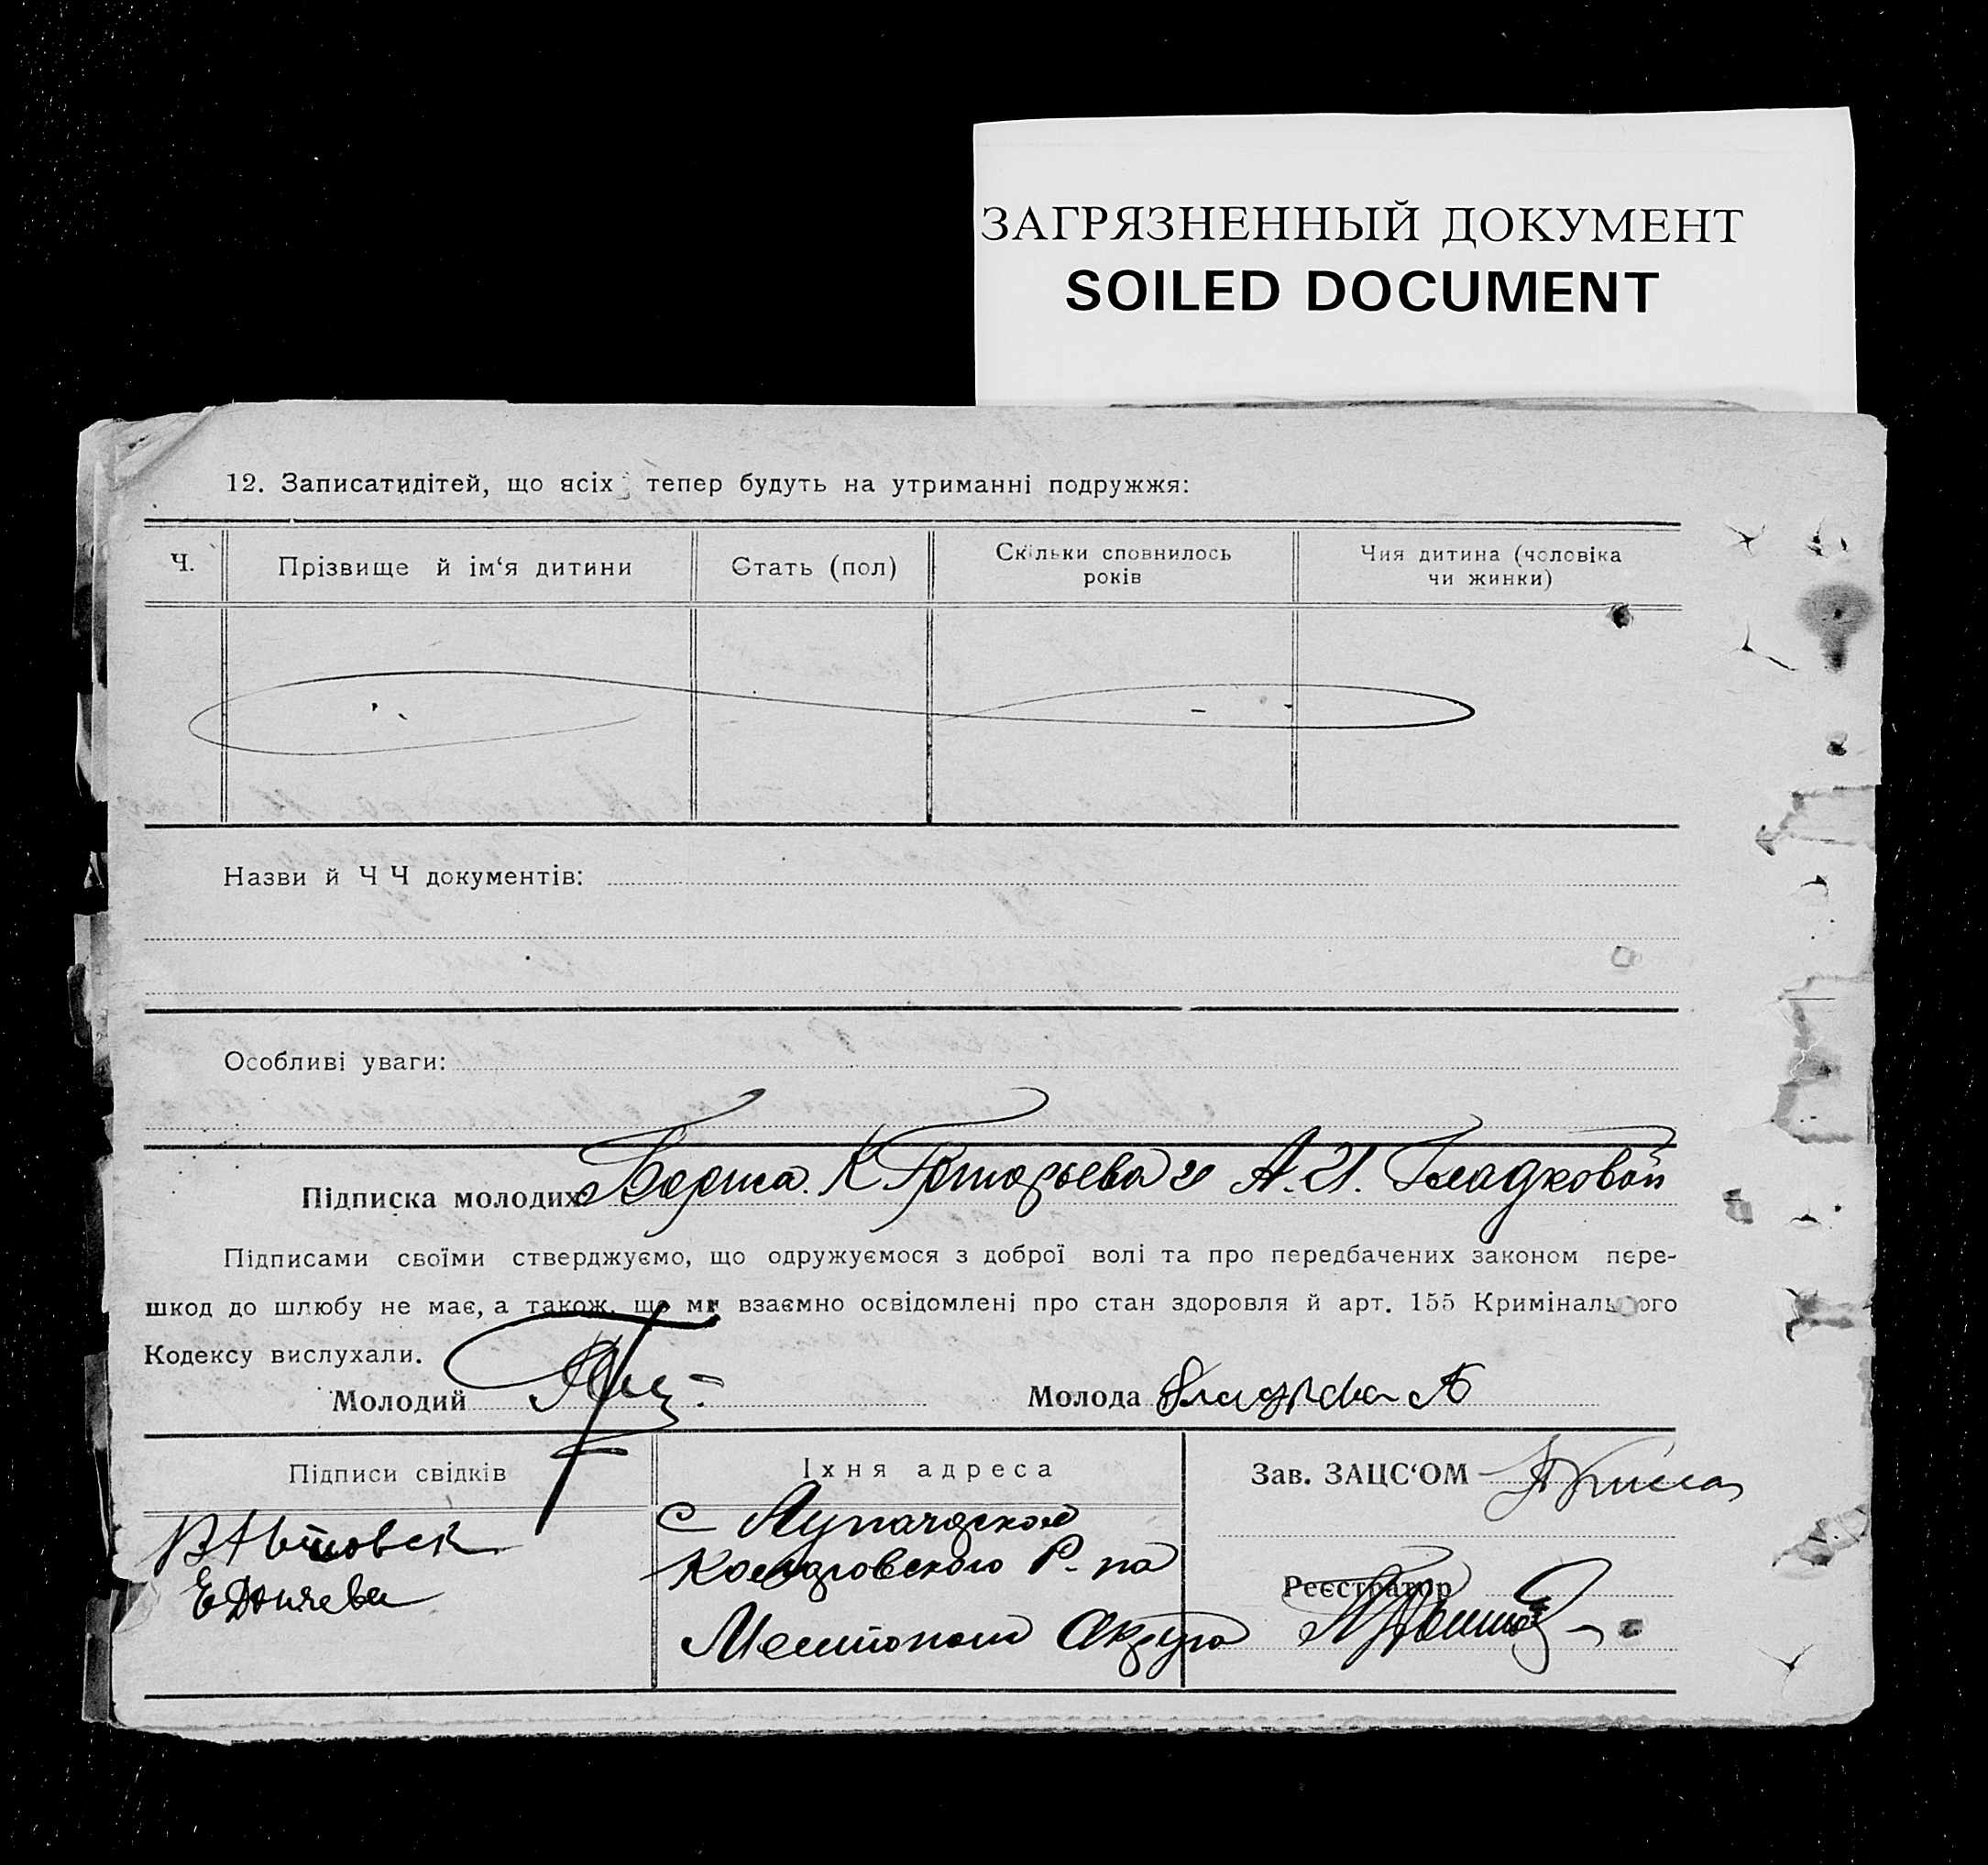 ЗАГРЯЗНЕННЫЙ ДОКУМЕНТ
SOILED DOCUMENT
12. Записатидітей, що всіх тепер будуть на утриманні подружжя:
Ч.
Прізвище й ім‘я дитини
Стать (пол)
Скільки сповнилось
років
Чия дитина (чоловіка
чи жинки)
Назви й Ч Ч документів:
Особливі уваги:
Підписка молодих Бориса К Григорьева и А. И. Гладковой
Підписами своїми стверджуємо, що одружуємося з доброї волі та про передбачених законом пере-
шкод до шлюбу не має, а також, що ми взаємно освідомлені про стан здоровля й арт. 155 Кримінального
Кодексу вислухали.
Молодий
Молода Гладкова А
Підписи свідків
Їхня адреса
Зав. ЗАЦС‘ОМ
Е Дончева
с
Р-на
Округа
Реєстратор